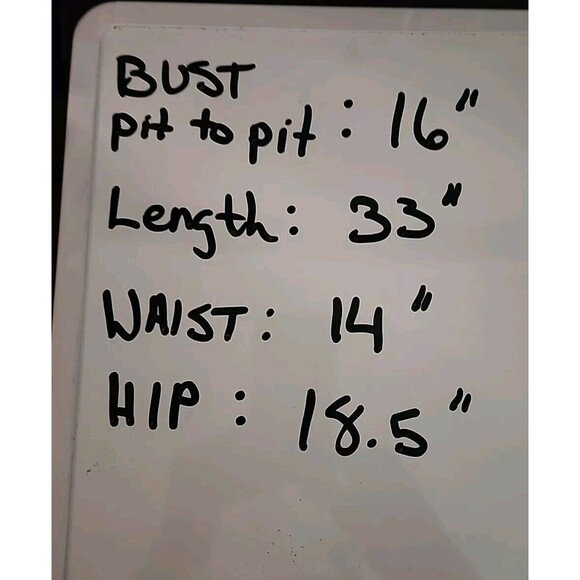 BUST
pit to pit : 16"
Length: 33"
WAIST: 14"
HIP : 18.5"